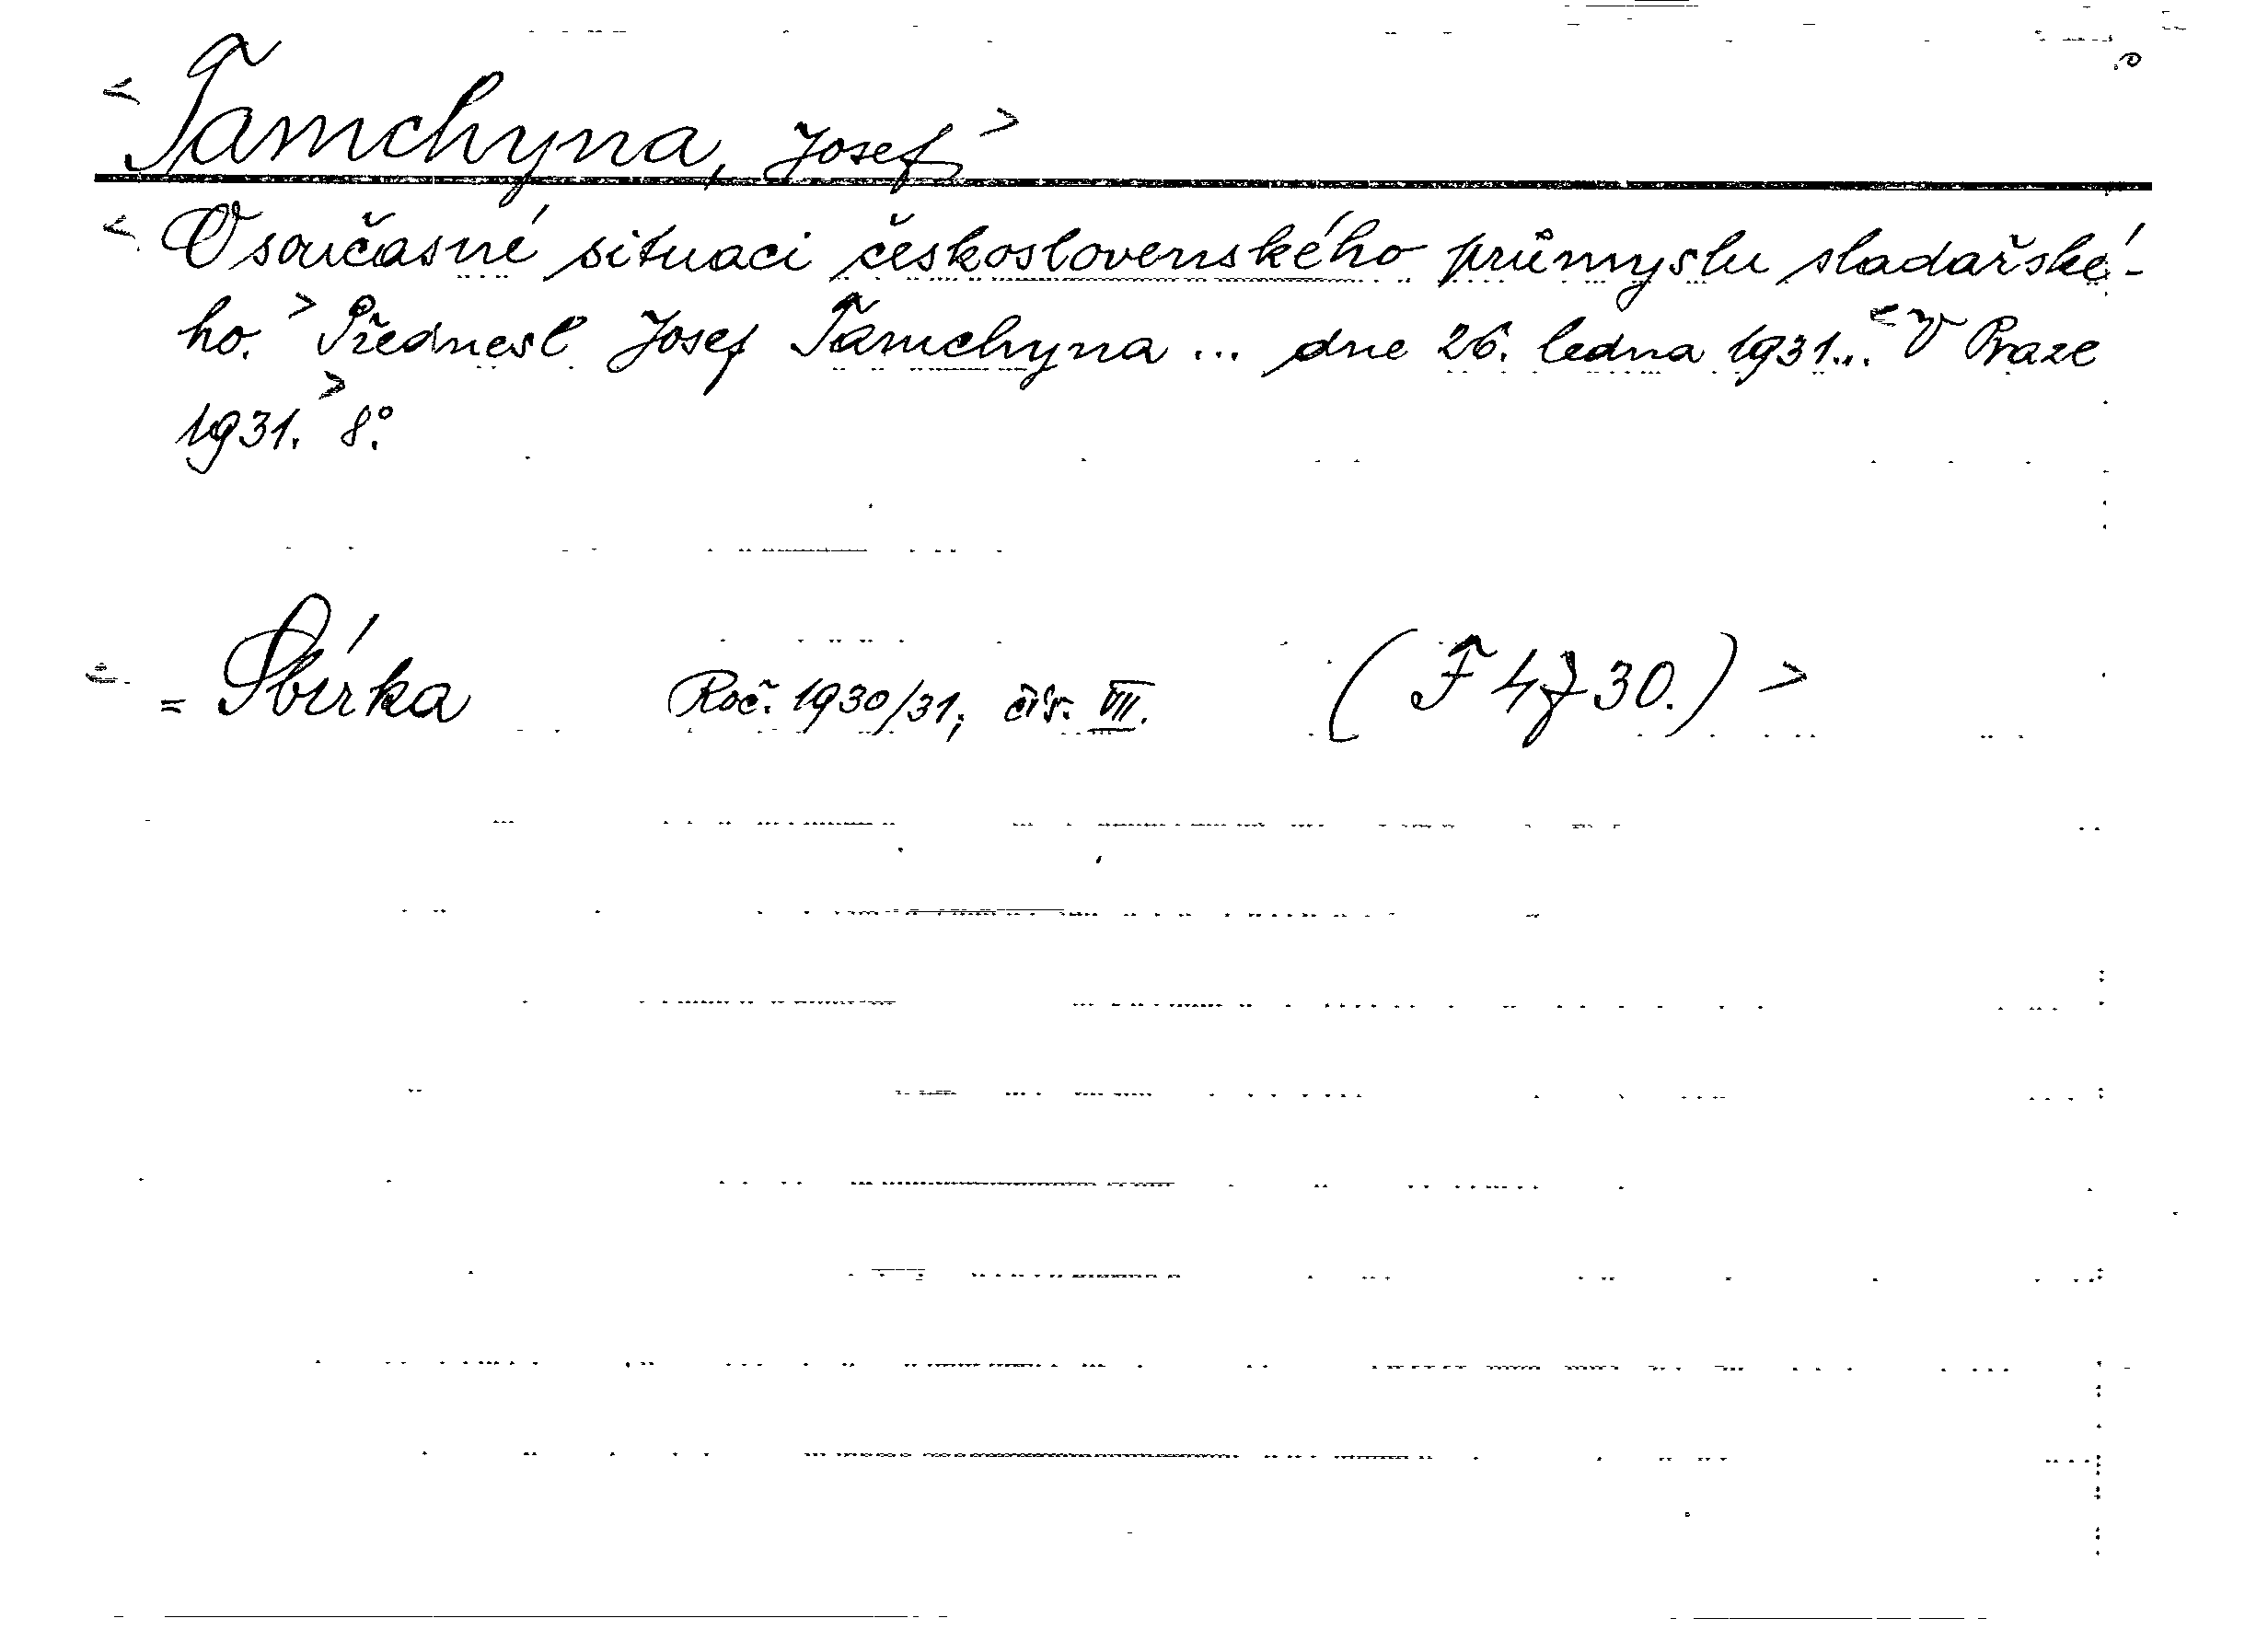 < Tamchyna, Josef >
< O současné situaci československého průmyslu sladařské-
ho. > Přednesl Josef Tamchyna ... dne 26. ledna 1931... < V Praze
1931. > 8°.
< = Sbírka Roč. 1930/31, čís. VII. (F 4730.) >